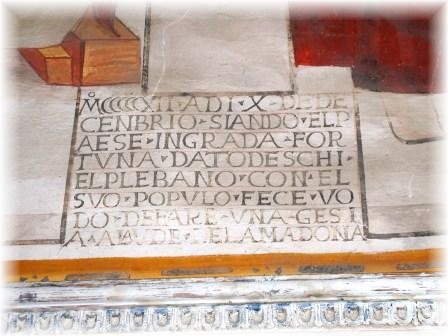 MCCCCCXII · ADI · X · DE DE
CENBRIO · SIANDO · EL P
AESE · IN GRADA · FOR
TVNA · DA TODESCHI ·
EL PLEBANO · CON · EL
SVO · POPVLO · FECE · VO
DO · DE FARE · VNA · GESI
A · A LAVDE · DE LA MADONA